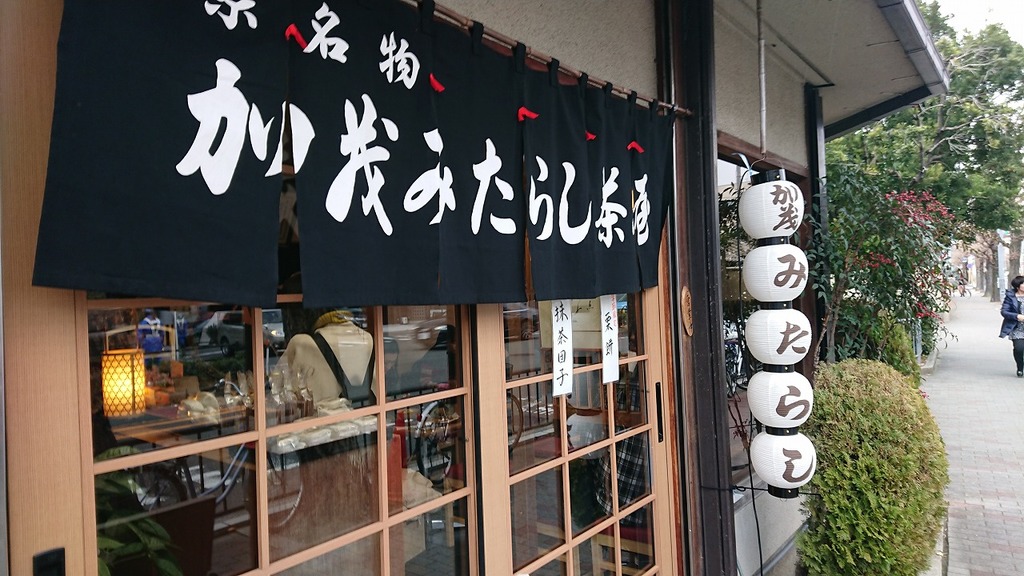 京名物
加茂みたらし茶屋
抹茶団子
加茂みたらし